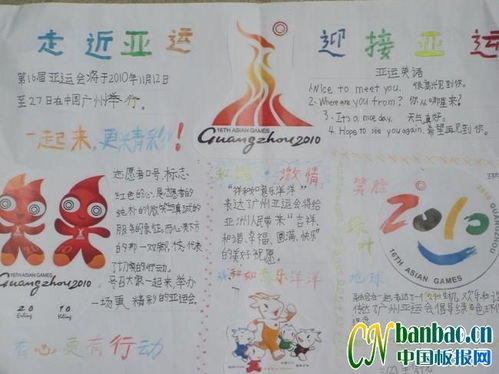 走近亚运
迎接亚运
第16届亚运会将于2010年11月12日
至27日在中国广州举行。
一起来,更精彩!
16TH ASIAN GAMES
Guangzhou 2010
亚运英语
1.Nice to meet you. 很高兴见到你。
2.Where are you from? 你从哪里来?
3. It's a nice day. 天气真好。
4. Hope to see you again. 希望再见到你。
志愿者口号、标志
红色的心,是志愿者的
服务的象征。
号召大家一起来,举办
一场更精彩的亚运会。
20 10
有心更有行动
和谐 激情
"祥和如意乐洋洋"
表达了广州亚运会将给
亚洲人民带来"吉祥、
和谐、幸福、圆满、快乐"
的美好祝愿。
祥和如意乐洋洋
笑脸
绿叶
地球
2010
16TH ASIAN GAMES
GUANGZHOU
CN banbao.cn
中国板报网